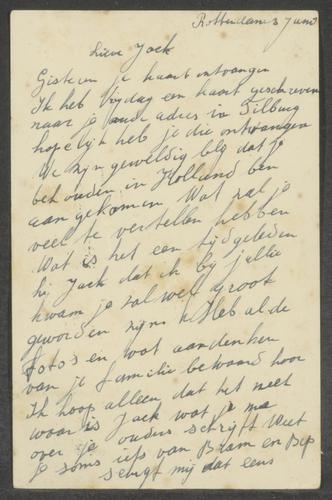 Rotterdam 3 Juni
Lieve Jack
Gisteren je kaart ontvangen
Ik heb Vrijdag een kaart geschreven
naar je oude adres in Tilburg
hopelijk heb je die ontvangen
We zijn geweldig blij dat je
behouden in Holland ben
aangekomen Wat zal je
veel te vertellen hebben
Wat is het een tijd geleden
hé Jack dat ik bij jullie
kwam je zal wel groot
geworden zijn Heb al de
foto's en wat aandenken
van je familie bewaard hoor
Ik hoop alleen dat het niet
waar is Jack wat je ma
over je ouders schrijft Weet
je soms iets van Bram en Bep
schrijf mij dat eens